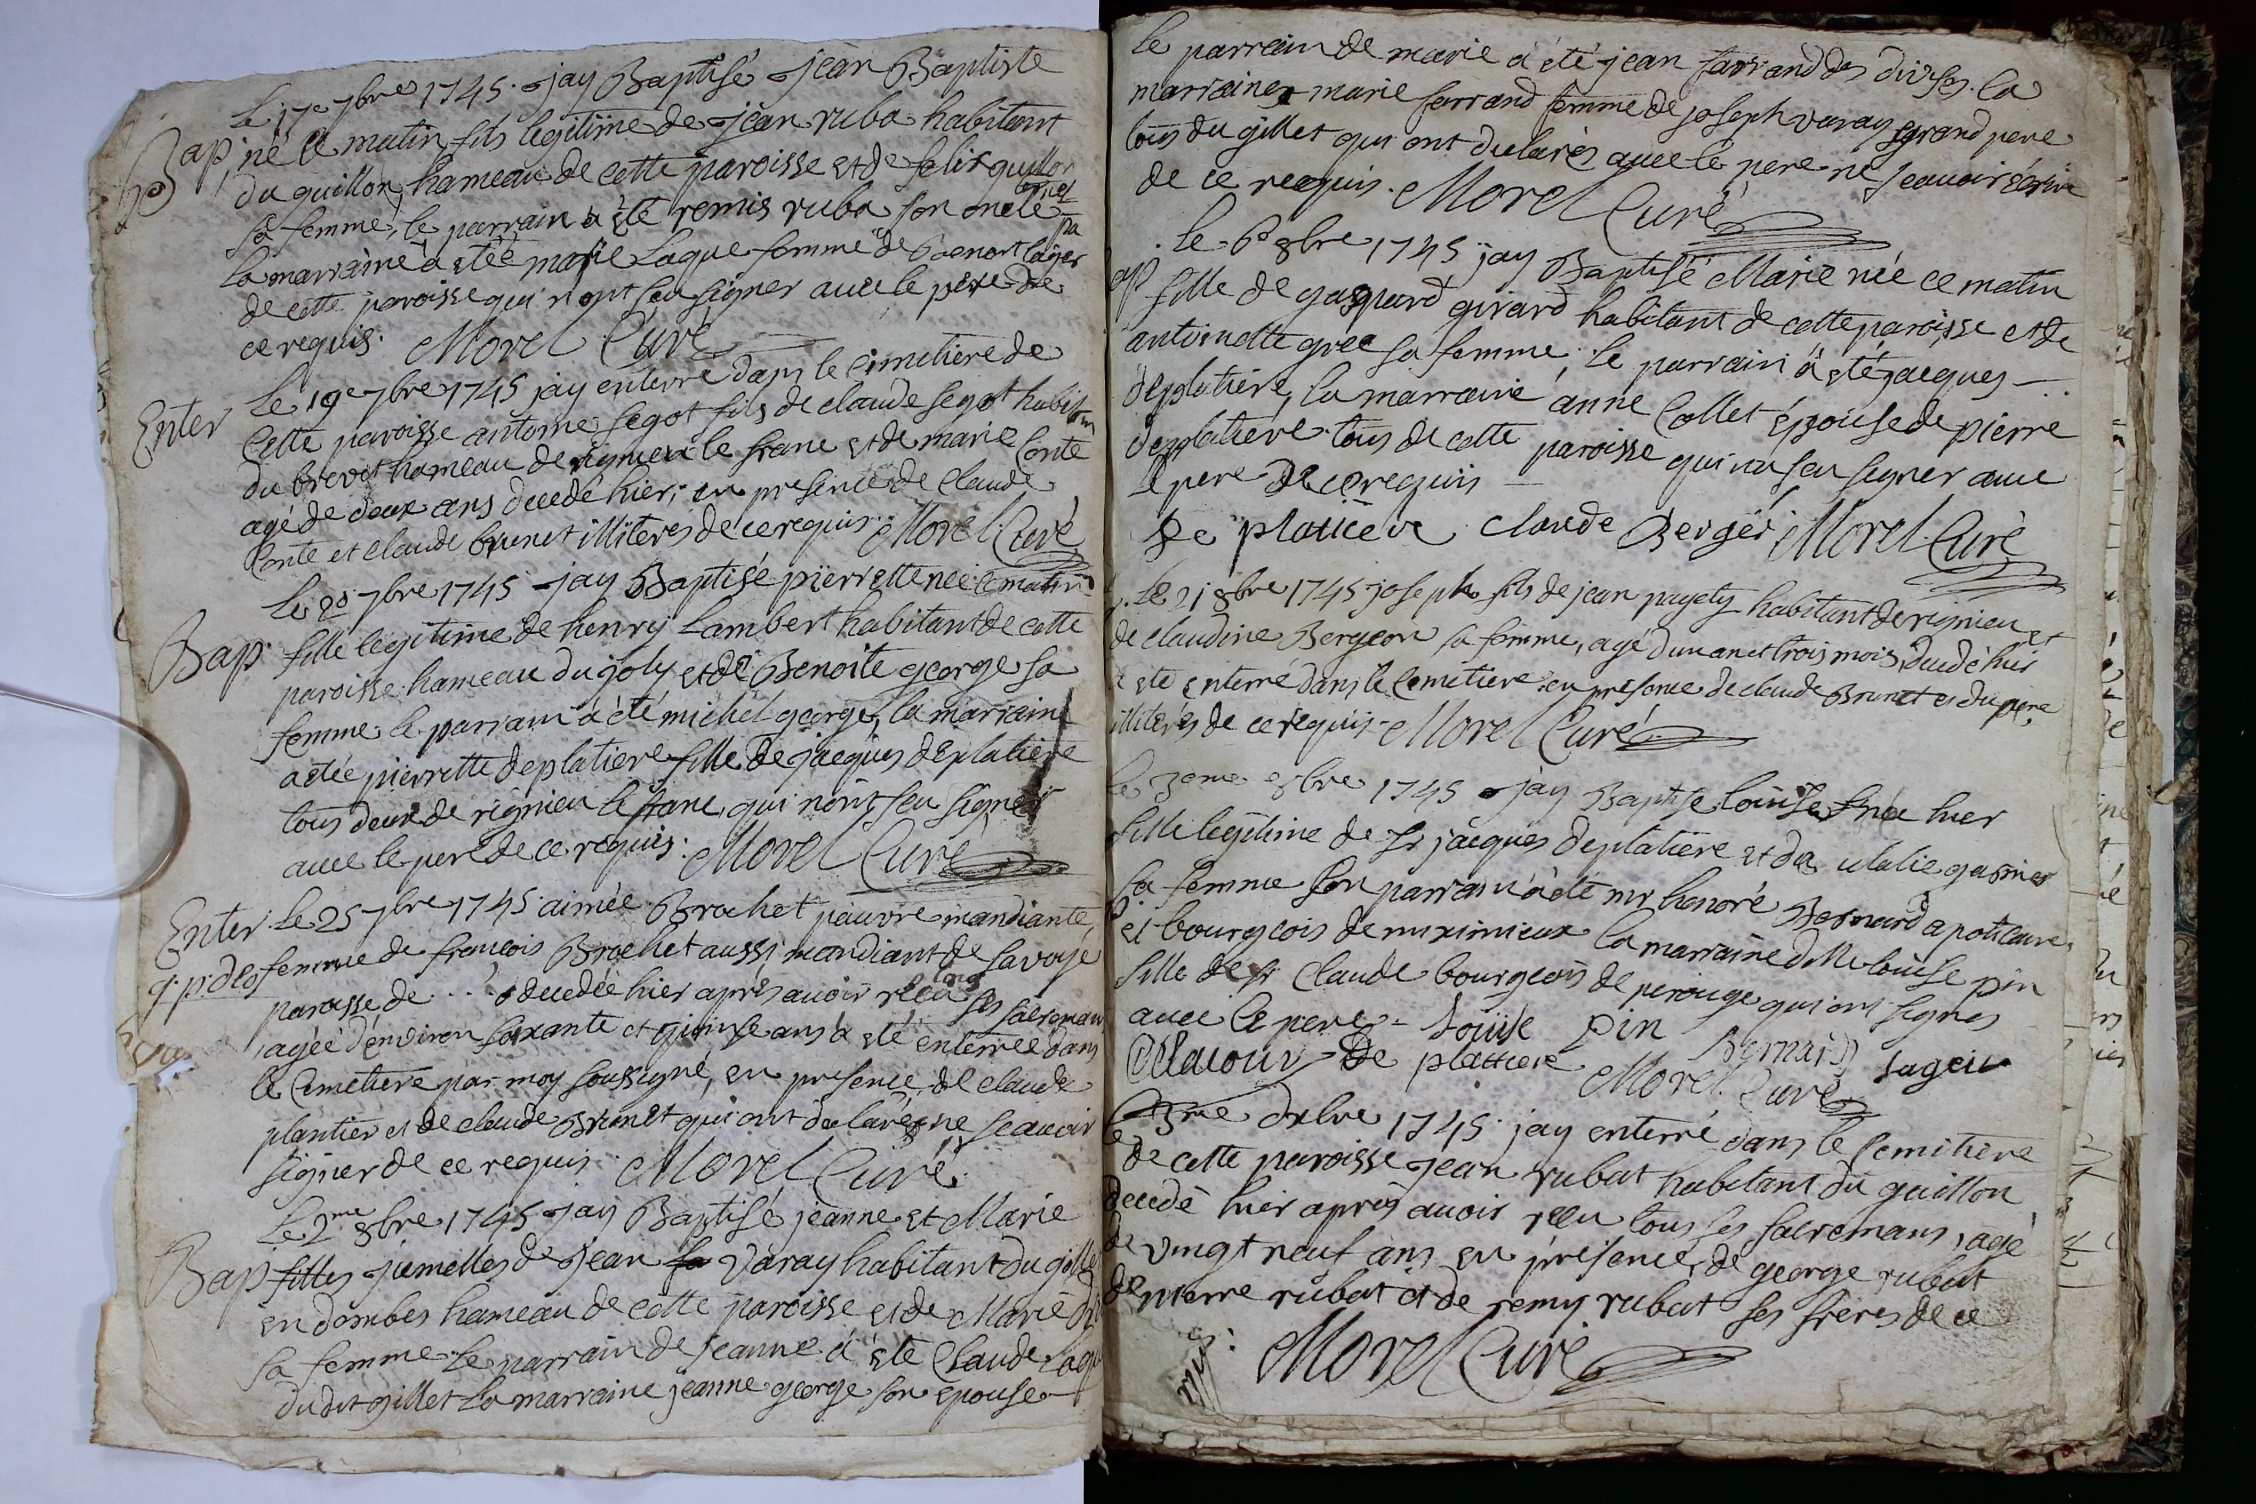 Le 17e 7bre 1745. jay Baptisé jean Baptiste
Bap né ce matin fils legitime de jean ruba habitant
du guillon hameau de cette paroisse et de
sa femme, le parrain a été remis ruba son oncle
la marraine a étéé marie Laque femme de
de cette paroisse qui n'ont seu signer avec le pere de
ce requis. Morel Curé
Enter Le 19e 7bre 1745 jay enterré dans le cimetiere de
Cette paroisse antoine segot fils de claude segot
du brevet hameau de rignieu le franc et de marie Conte
agé de deux ans decedé hier, en presence de Claude
Conte et claude brunet illiteres de ce requis. Morel Curé
Le 20 7bre 1745 jay Baptisé pierrette née ce matin
Bap fille legitime de henry Lambert habitant de cette
paroisse hameau du joly et de Benoite george sa
femme le parrain a été michel george, la marraine
a etée pierrette deplatiere fille de jacques deplatiere
tous deux de rignieu le franc qui n'ont seu signer
avec le pere de ce requis. Morel Curé
Enter Le 25 7bre 1745 aimée Brochet pauvre mandiante,
femme de francois Brochet aussi mandiant de savoye
paroisse de ... decedée hier après avoir reçu ses sacremans
agée d'environ soixante et quinse ans a été enterrée dans
le Cimetiere par moy soussigné, en presence de claude
plantier et de claude Brunet qui ont declaré ne scavoir
signer de ce requis. Morel Curé
Le 2me 8bre 1745 jay Baptisé jeanne et Marie
Bap filles jumelles de jean Varay habitant du
en dombes hameau de cette paroisse et de Marie
sa femme. Le parrain de jeanne a été Claude
dudit gillet La marraine jeanne george son epouse
le parrain de marie a été jean farrand des
marraine marie farrand femme de joseph varay grand pere
tous du gillet qui ont declarés avec le pere ne scavoir écrire
de ce requis. Morel Curé
Le 6e 8bre 1745 jay Baptisé Marie née ce matin
fille de gaspard girard habitant de cette paroisse et de
antoinette gree sa femme, le parrain a été jacques
deplatiere, la marraine anne Collet épouse de pierre
deplatiere tous de cette paroisse qui n'a seu signer avec
le pere de ce requis
De platiere Claude Berger Morel Curé
Le 21 8bre 1745 joseph fils de jean habitant de rignieu et
de claudine Bergeon sa femme, agé d'un an et trois mois, decedé hier
a été enterré dans le Cemetiere en presence de claude Brunet et du pere,
illiterés de ce requis. Morel Curé
Le 1745 jay Baptisé Louise née hier
fille legitime de sr jacques deplatiere et de
sa femme son parrain a été mr honoré Bernard apoticaire
et bourgeois de miximieux la marraine dlle louise pin
fille de sr Claude bourgeois de perouge qui ont signés
avec le pere. Louise pin
De platiere Bernard Morel Curé
Le 3me 1745. jay enterré dans le Cemitiere
de cette paroisse jean rubat habitant du guillon
decedé hier après avoir reçu tous ses sacremans, agé
de vingt neuf ans en presence de george rubat
de pierre rubat et de remy rubat ses freres de ce
Morel Curé